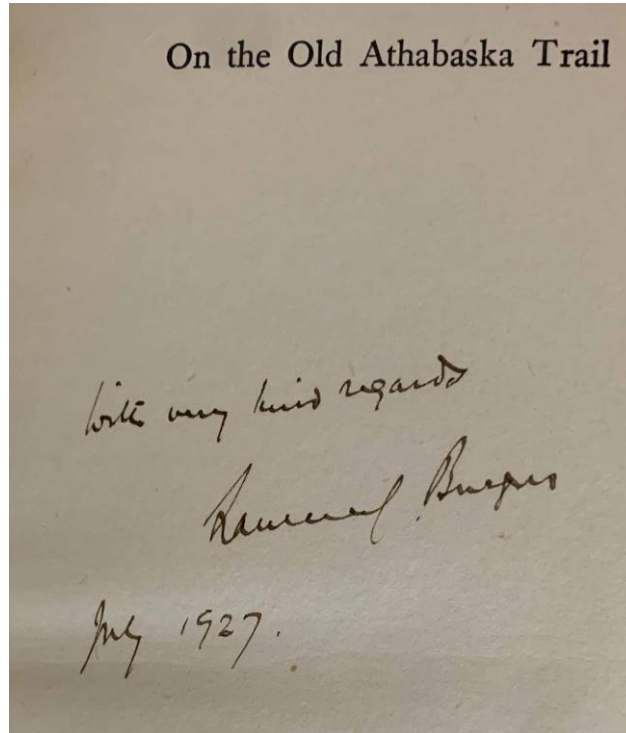 On the Old Athabaska Trail
With very kind regards
Lawrence J. Burpee
July 1927.